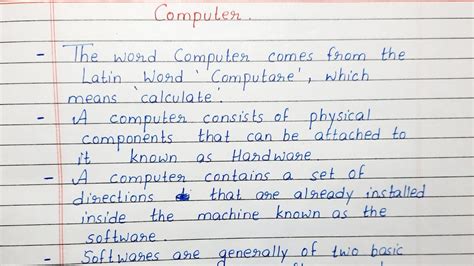 Computer.
- The word Computer comes from the
Latin Word 'Computare', which
means 'calculate'.
- A computer consists of physical
components that can be attached to
it known as Hardware.
- A computer contains a set of
directions that are already installed
inside the machine known as the
software.
- Softwares are generally of two basic